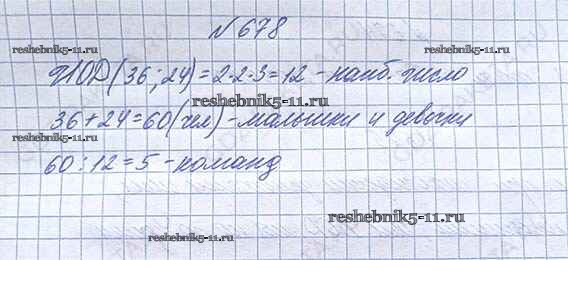 №678
reshebnik5-11.ru reshebnik5-11.ru
НОД(36;24)=2·2·3=12 - наиб. число
reshebnik5-11.ru
36+24=60(чел) - мальчики и девочки
reshebnik5-11.ru
60:12=5 - команд
reshebnik5-11.ru
reshebnik5-11.ru reshebnik5-11.ru